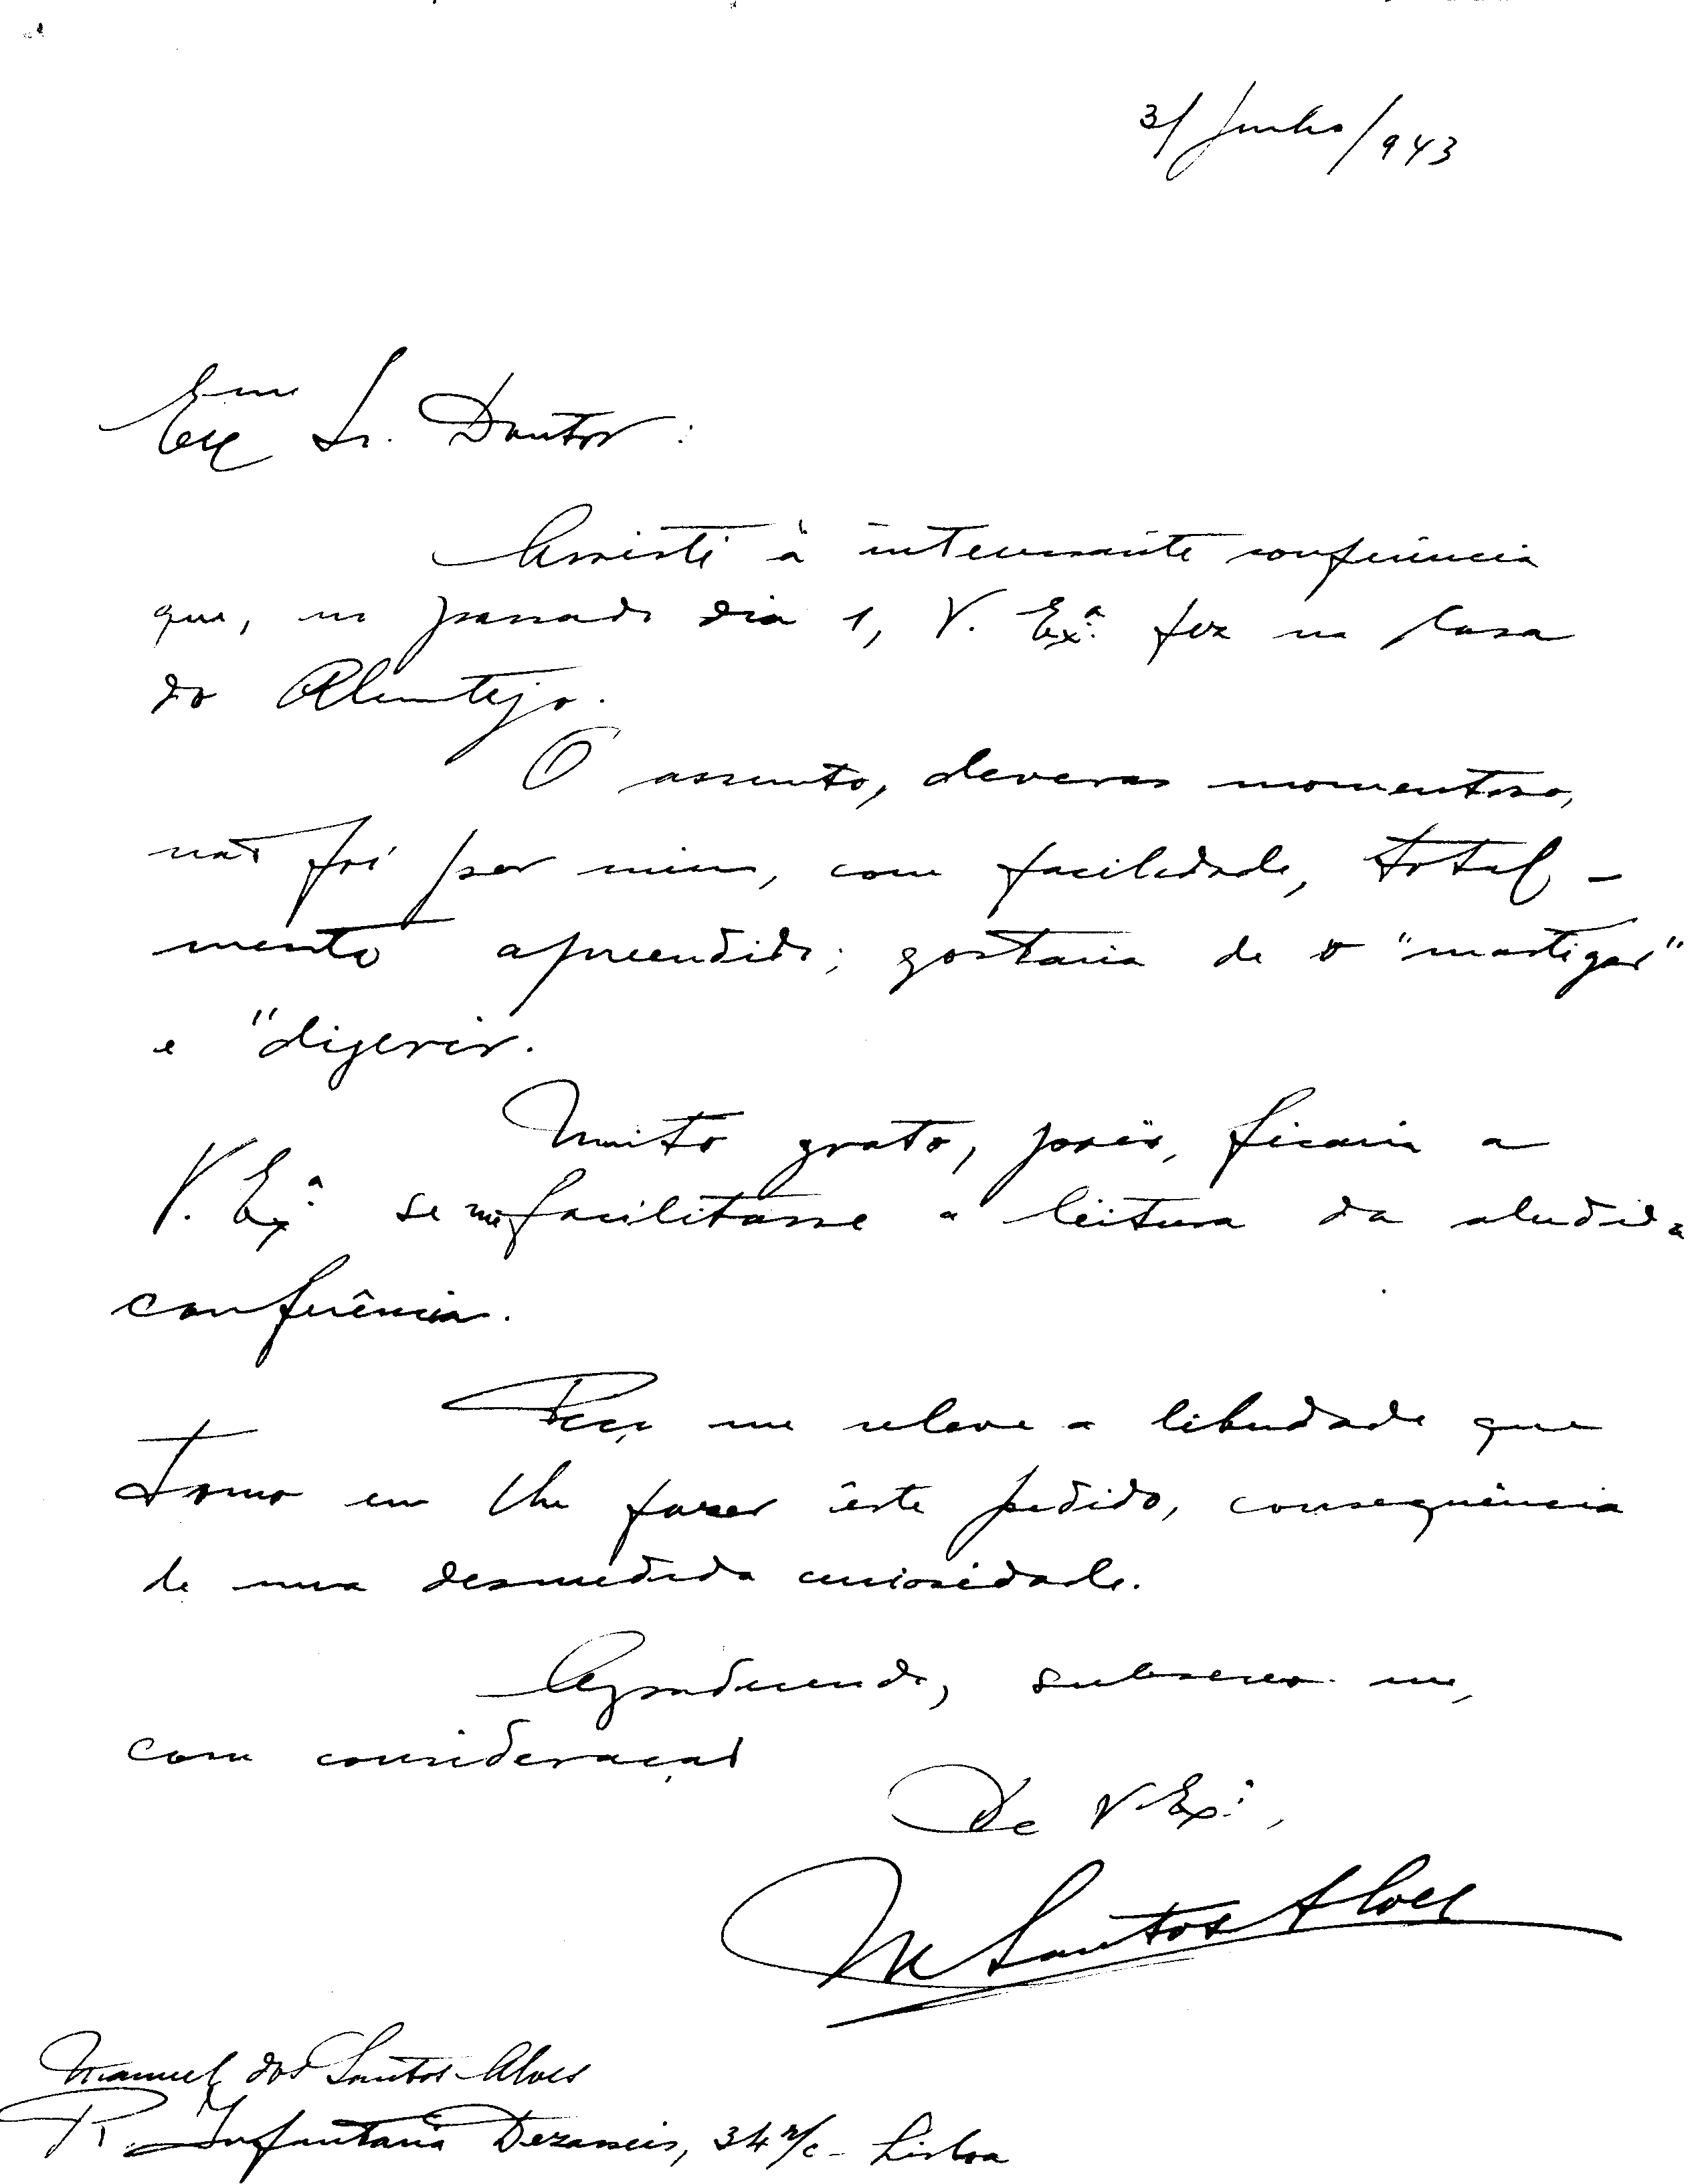 3/Junho/943
Exmo Sr. Doutor:
Assisti à interessante conferência
que, no passado dia 1, V. Exª. fez na Casa
do Alentejo.
O assunto, deveras momentoso,
não foi por mim, com facilidade, total-
mente apreendido; gostaria de o "mastigar"
e "digerir.
Muito grato, pois, ficaria a
V. Exª. se me facilitasse a leitura da aludida
conferência.
Peço me releve a liberdade que
tomo em lhe fazer êste pedido, consequência
de uma desmedida curiosidade.
Agradecendo, subscrevo-me,
com consideração
De V. Exª.,
M Santos Alves
Manuel dos Santos Alves
R. Infantaria Dezasseis, 34 r/c - Lisboa